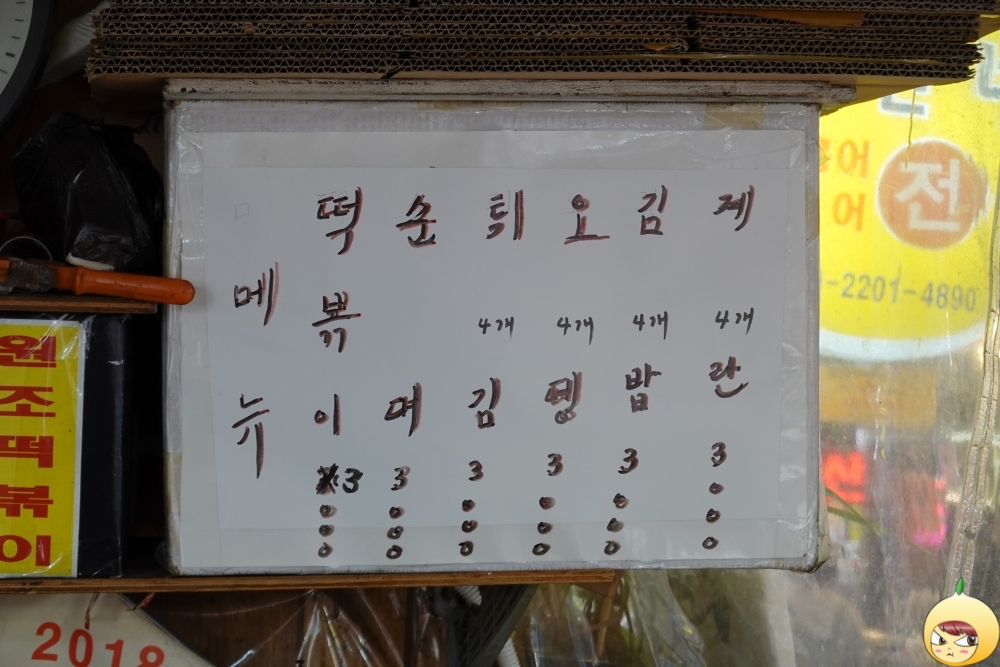 메뉴
떡뽂이 3000
순대 3000
튀김 4개 3000
오뎅 4개 3000
김밥 4개 3000
계란 4개 3000
원조떡볶이
2018
어
어
전
-2201-4890